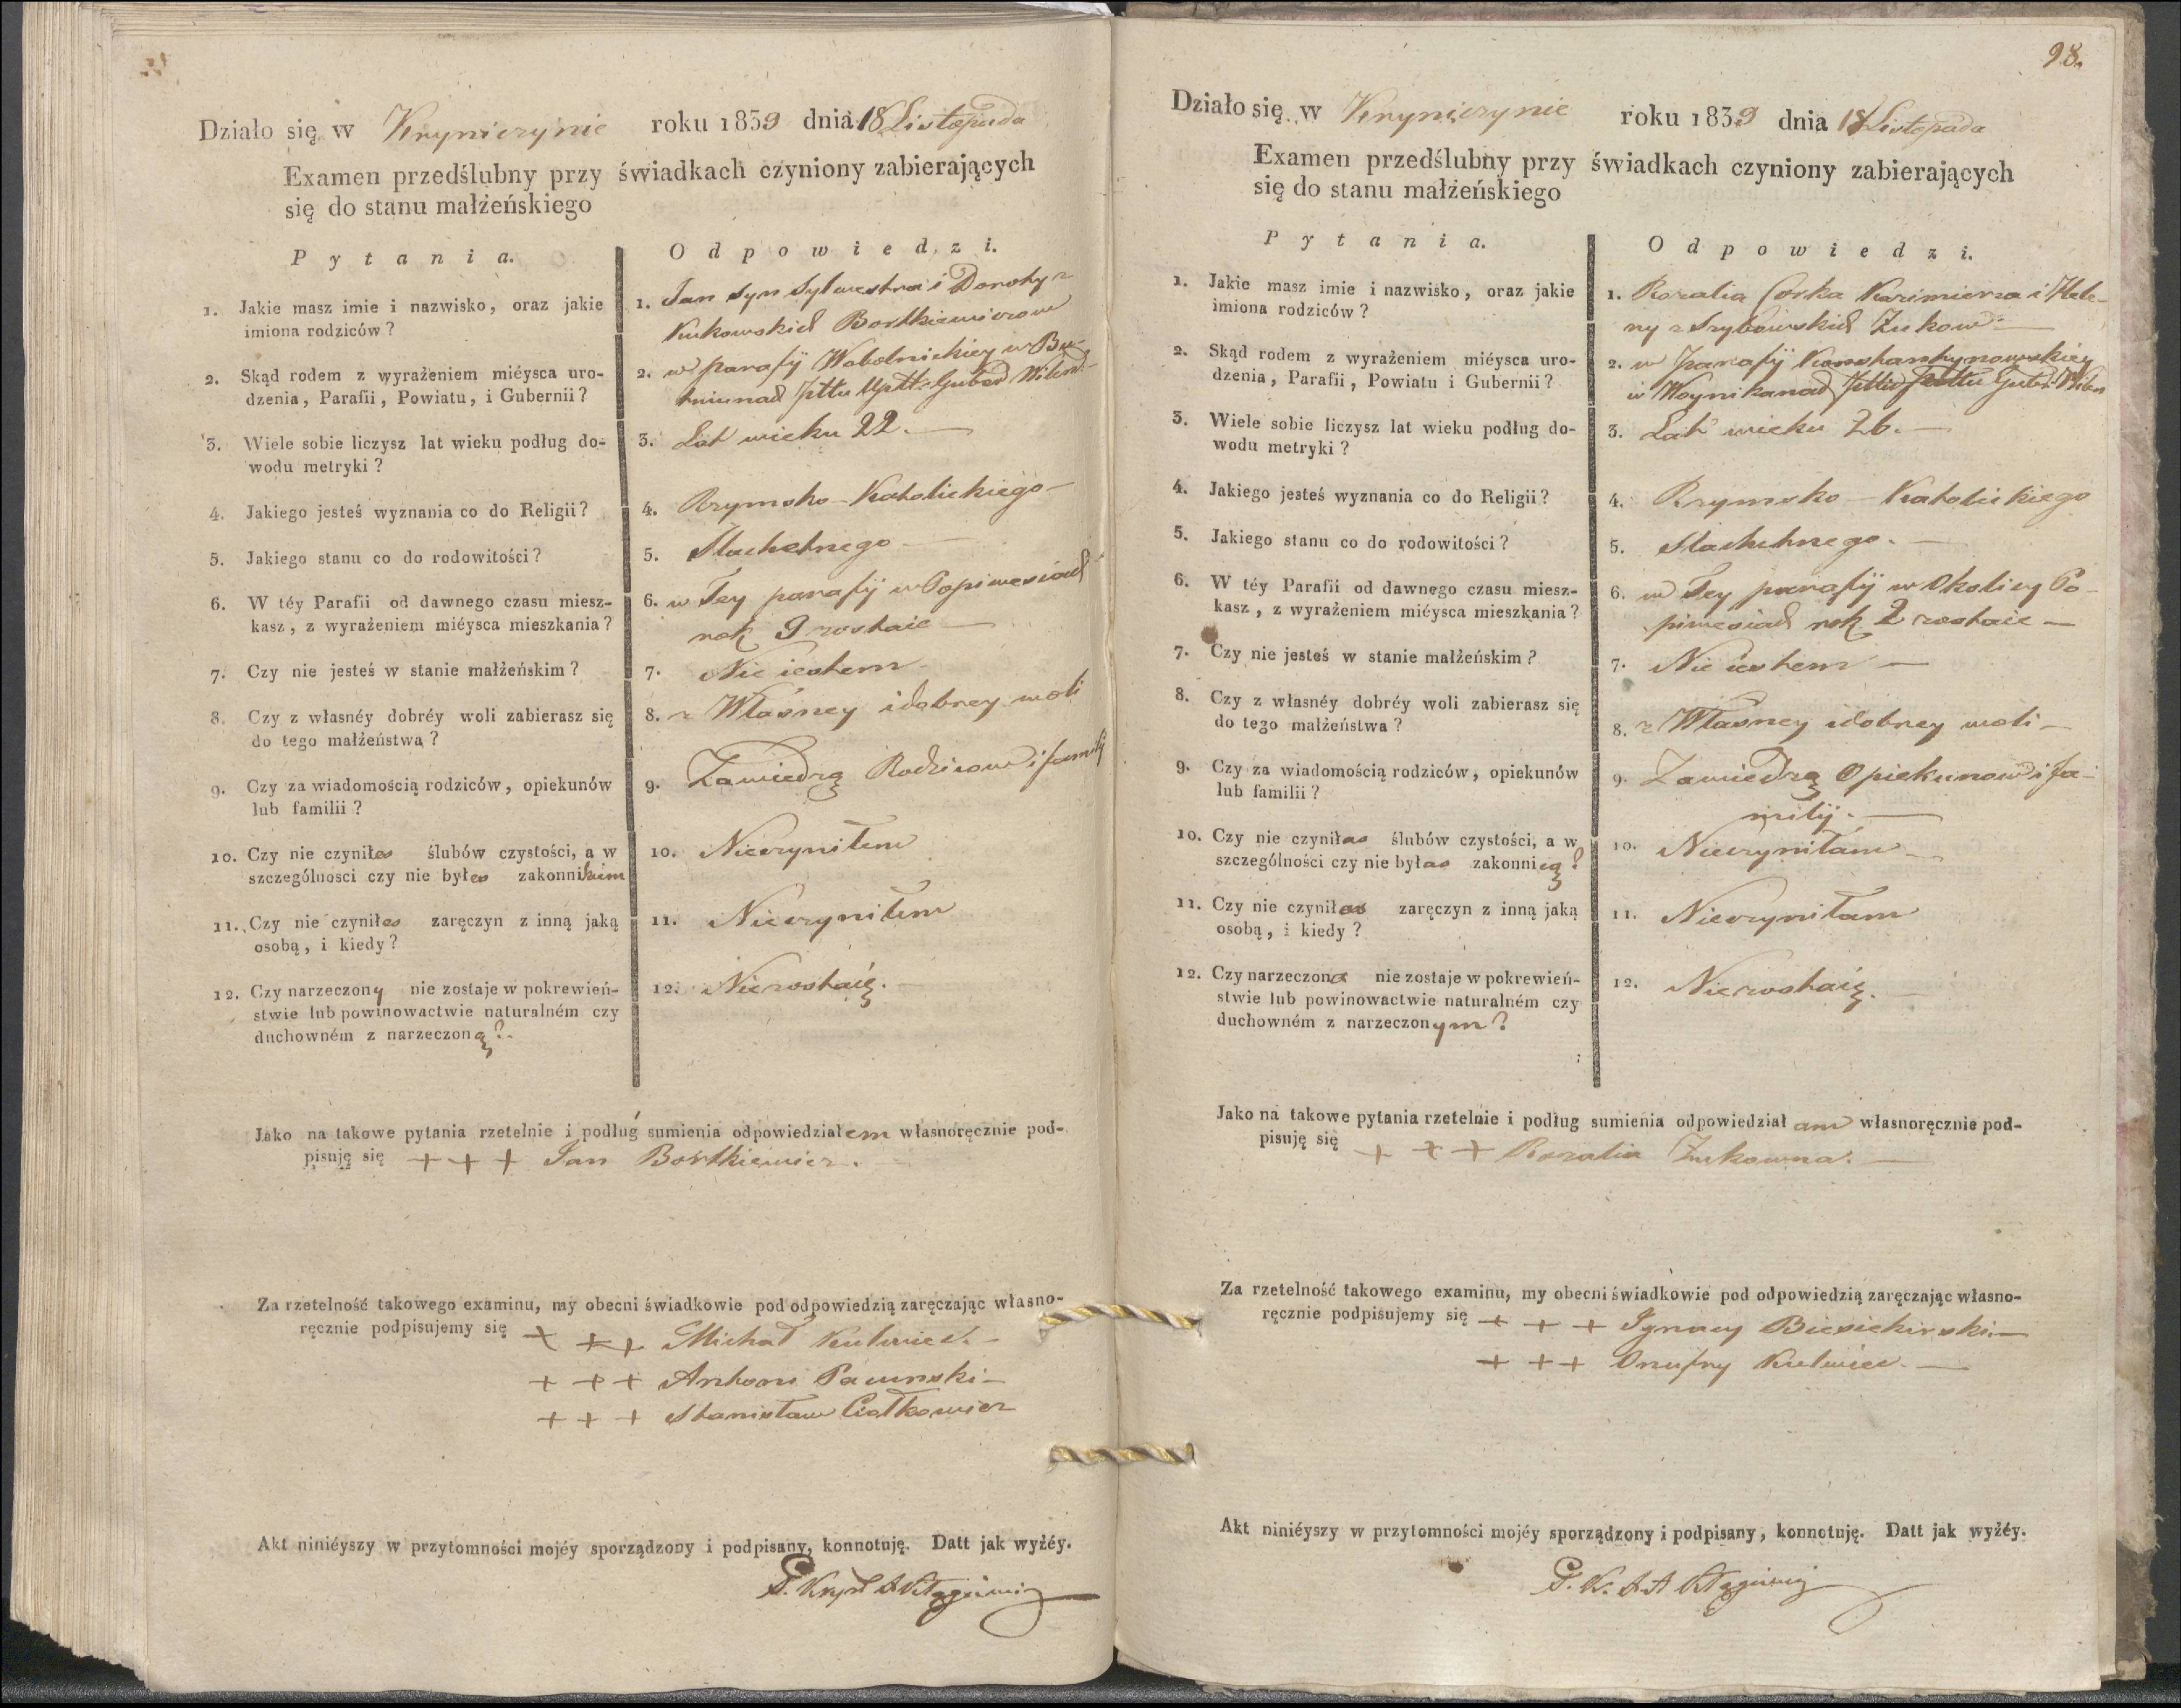 Działo się w Kryniczynie roku 1839 dnia 18 Listopada
Examen przedślubny przy świadkach czyniony zabierających
się do stanu małżeńskiego
Pytania.
Odpowiedzi.
1. Jakie masz imie i nazwisko, oraz jakie
imiona rodziców?
1. Jan syn Sylwestra i Doroty z
Bortkiewiczow
2. Skąd rodem z wyrażeniem miéysca uro-
dzenia, Parafii, Powiatu, i Gubernii?
2. w parafij Wobolnickiey w
3. Wiele sobie liczysz lat wieku podług do-
wodu metryki?
3. Lat wieku 22.
4. Jakiego jesteś wyznania co do Religii?
4. Rzymsko-Katolickiego
5. Jakiego stanu co do rodowitości?
5. Slachetnego
6. W téy Parafii od dawnego czasu miesz-
kasz, z wyrażeniem miéysca mieszkania?
6. w Tey parafij w
rok 9 zostaie
7. Czy nie jesteś w stanie małżeńskim?
7. Nie iestem
8. Czy z własnéy dobréy woli zabierasz się
do tego małżeństwa?
8. z Własney i dobrey woli
9. Czy za wiadomością rodziców, opiekunów
lub familii?
9. Zawiedzą Rodzicow i familij
10. Czy nie czyniłes ślubów czystości, a w
szczególnosci czy nie byłes zakonnikiem
10. Nieczyniłem
11. Czy nie czyniłes zaręczyn z inną jaką
osobą, i kiedy?
11. Nieczyniłem
12. Czy narzeczony nie zostaje w pokrewień-
stwie lub powinowactwie naturalném czy
duchowném z narzeczoną?
12. Niezostaię.
Jako na takowe pytania rzetelnie i podług sumienia odpowiedziałem własnoręcznie pod-
pisuję się + + + Jan Bortkiewicz.
Za rzetelność takowego examinu, my obecni świadkowie pod odpowiedzią zaręczając własno-
ręcznie podpisujemy się + + + Michał Kulwiec.
+ + + Antoni Pacunski
+ + + Stanisław
Akt niniéyszy w przytomności mojéy sporządzony i podpisany, konnotuję. Datt jak wyżéy.
98.
Działo się w Kryniczynie roku 1839 dnia 18 Listopada
Examen przedślubny przy świadkach czyniony zabierających
się do stanu małżeńskiego
Pytania.
Odpowiedzi.
1. Jakie masz imie i nazwisko, oraz jakie
imiona rodziców?
1. Rozalia Corka Kazimierza i Hele-
ny z Żukow
2. Skąd rodem z wyrażeniem miéysca uro-
dzenia, Parafii, Powiatu i Gubernii?
2. w Parafij Konstantynowskiey
3. Wiele sobie liczysz lat wieku podług do-
wodu metryki?
3. Lat wieku 26.
4. Jakiego jesteś wyznania co do Religii?
4. Rzymsko-Katolickiego
5. Jakiego stanu co do rodowitości?
5. Slachetnego.
6. W téy Parafii od dawnego czasu miesz-
kasz, z wyrażeniem miéysca mieszkania?
6. w Tey parafij w Okolicy Po-
rok 2 zostaie
7. Czy nie jesteś w stanie małżeńskim?
7. Nie iestem
8. Czy z własnéy dobréy woli zabierasz się
do tego małżeństwa?
8. z Własney i dobrey woli
9. Czy za wiadomością rodziców, opiekunów
lub familii?
9. Zawiedzą Opiekunow i fa-
milij.
10. Czy nie czyniłas ślubów czystości, a w
szczególności czy nie byłas zakonnicą?
10. Nieczyniłam
11. Czy nie czyniłas zaręczyn z inną jaką
osobą, i kiedy?
11. Nieczyniłam
12. Czy narzeczona nie zostaje w pokrewień-
stwie lub powinowactwie naturalném czy
duchowném z narzeczonym?
12. Niezostaię.
Jako na takowe pytania rzetelnie i podług sumienia odpowiedziałam własnoręcznie pod-
pisuję się + + + Rozalia Żukowna.
Za rzetelność takowego examinu, my obecni świadkowie pod odpowiedzią zaręczając własno-
ręcznie podpisujemy się + + + Ignacy Biesiekirski
+ + + Onufry Kulwiec.
Akt niniéyszy w przytomności mojéy sporządzony i podpisany, konnotuję. Datt jak wyżéy.